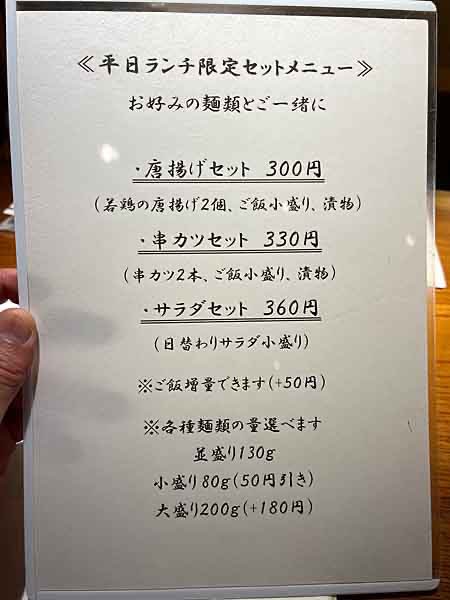 ≪平日ランチ限定セットメニュー≫
お好みの麺類とご一緒に
・唐揚げセット 300円
(若鶏の唐揚げ2個、ご飯小盛り、漬物)
・串カツセット 330円
(串カツ2本、ご飯小盛り、漬物)
・サラダセット 360円
(日替わりサラダ小盛り)
※ご飯増量できます(+50円)
※各種麺類の量選べます
並盛り130g
小盛り80g(50円引き)
大盛り200g(+180円)